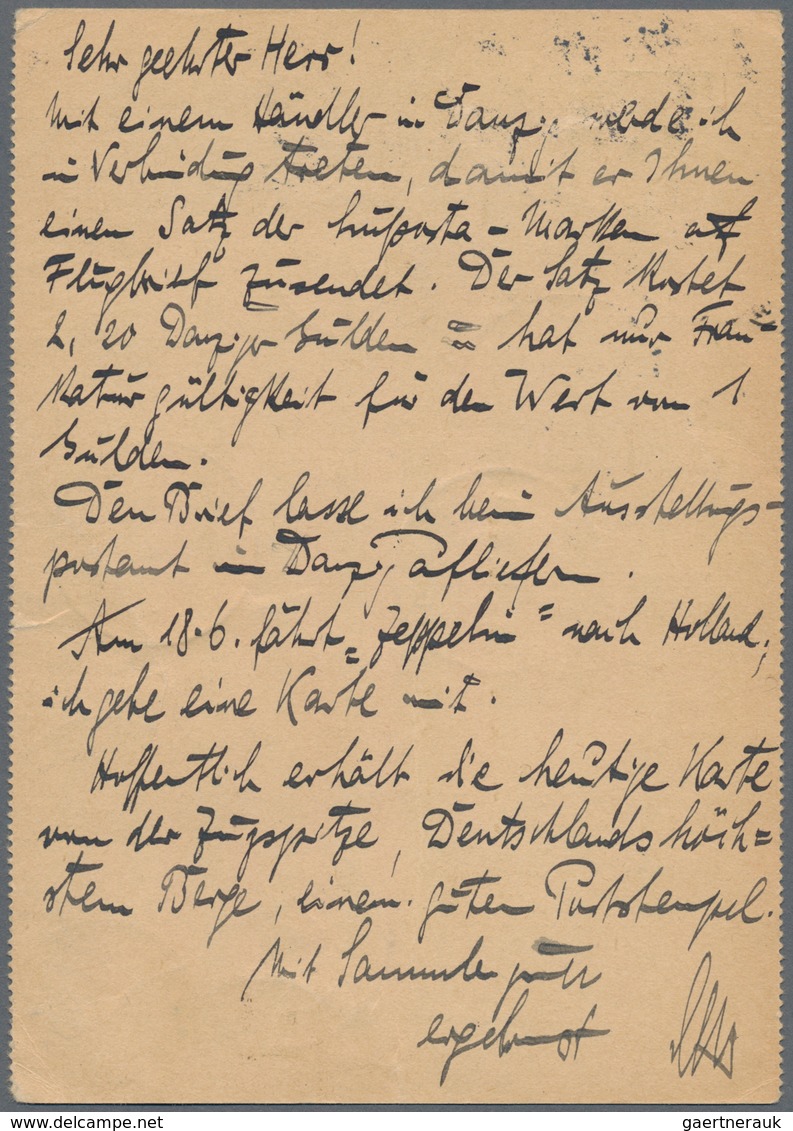 Sehr geehrter Herr!
Mit einem Händler in Danzig werde ich
in Verbindung treten, damit er Ihnen
einen Satz der Luposta-Marken auf
Flugbrief zusendet. Der Satz kostet
2,20 Danziger Gulden = hat nur Fran=
katurgültigkeit für den Wert von 1
Gulden.
Den Brief lasse ich beim Ausstellungs=
postamt in Danzig aufliefern.
Am 18.6. fährt "Zeppelin" nach Holland;
ich gebe eine Karte mit.
Hoffentlich erhält die heutige Karte
von der Zugspitze, Deutschlands höch=
stem Berge, einen guten Poststempel.
Mit Sammlergruß
ergebenst
gaertnerauk